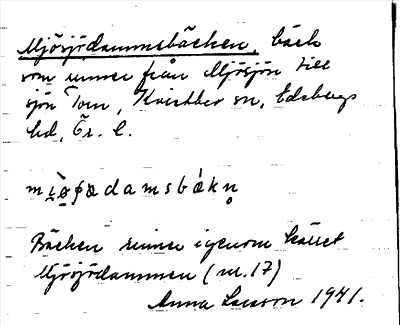 Mjösjödammsbäcken, bäck
som rinner från Mjösjön till
sjön Tom, Kvistbro sn, Edsbergs
hd, Ör. l.
Bäcken rinner igenom kärret
Mjösjödammen (nr. 17)
Anna Larsson 1941.